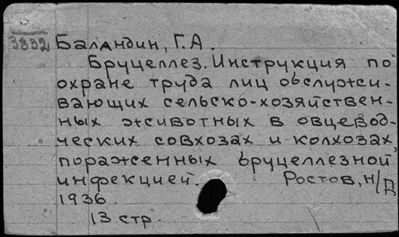 3832 Баландин, Г.А.
Бруцеллез. Инструкция по
охране труда лиц обслужи-
вающих сельско-хозяйствен-
ных животных в овцевод-
ческих совхозах и колхозах,
пораженных бруцеллезной
инфекцией. Ростов, н/Д
1936.
13 стр.